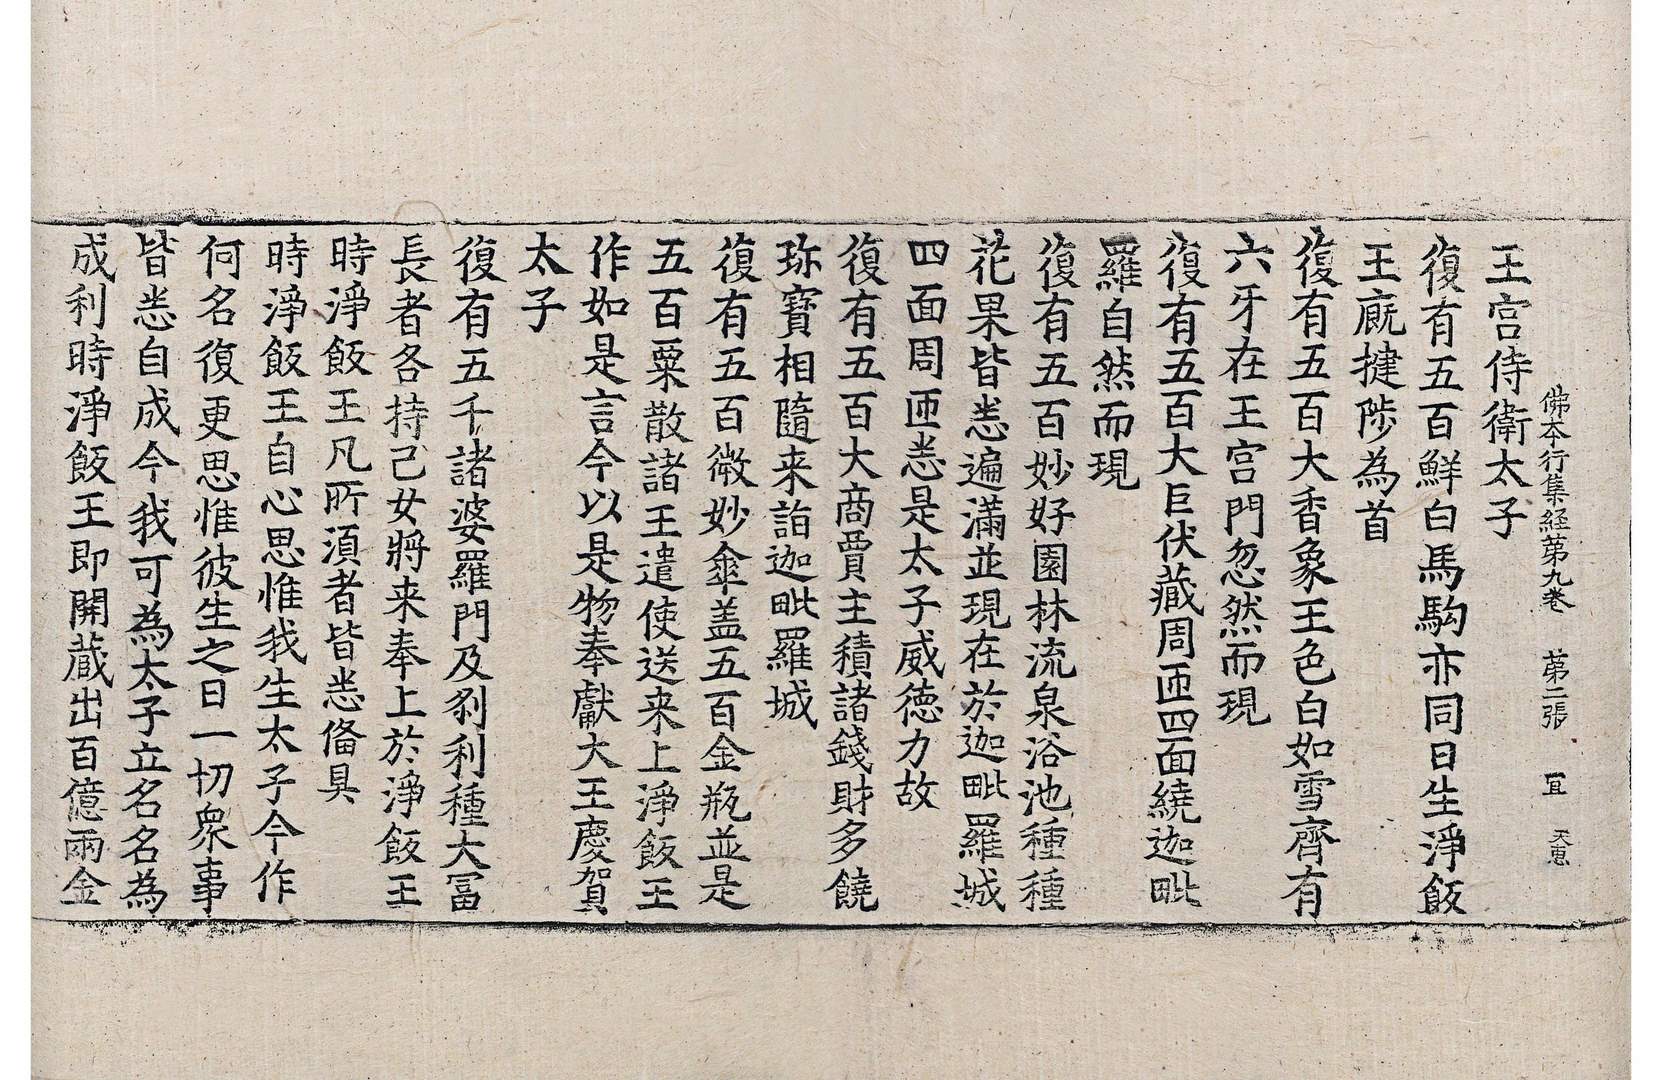 佛本行集経苐九卷　苐二張　冝　天惠
王宫侍衛太子
復有五百鮮白馬駒亦同日生淨飯
王廐揵陟為首
復有五百大香象王色白如雪齊有
六牙在王宫門忽然而現
復有五百大巨伏藏周匝四面繞迦毗
羅自然而現
復有五百妙好園林流泉浴池種種
花果皆悉遍滿並現在於迦毗羅城
四面周匝悉是太子威德力故
復有五百大商賈主積諸錢財多饒
珎寶相隨来詣迦毗羅城
復有五百微妙傘盖五百金瓶並是
五百粟散諸王遣使送来上淨飯王
作如是言今以是物奉獻大王慶賀
太子
復有五千諸婆羅門及刹利種大冨
長者各持己女將来奉上於淨飯王
時淨飯王凡所須者皆悉備具
時淨飯王自心思惟我生太子今作
何名復更思惟彼生之日一切衆事
皆悉自成今我可為太子立名名為
成利時淨飯王即開藏出百億兩金